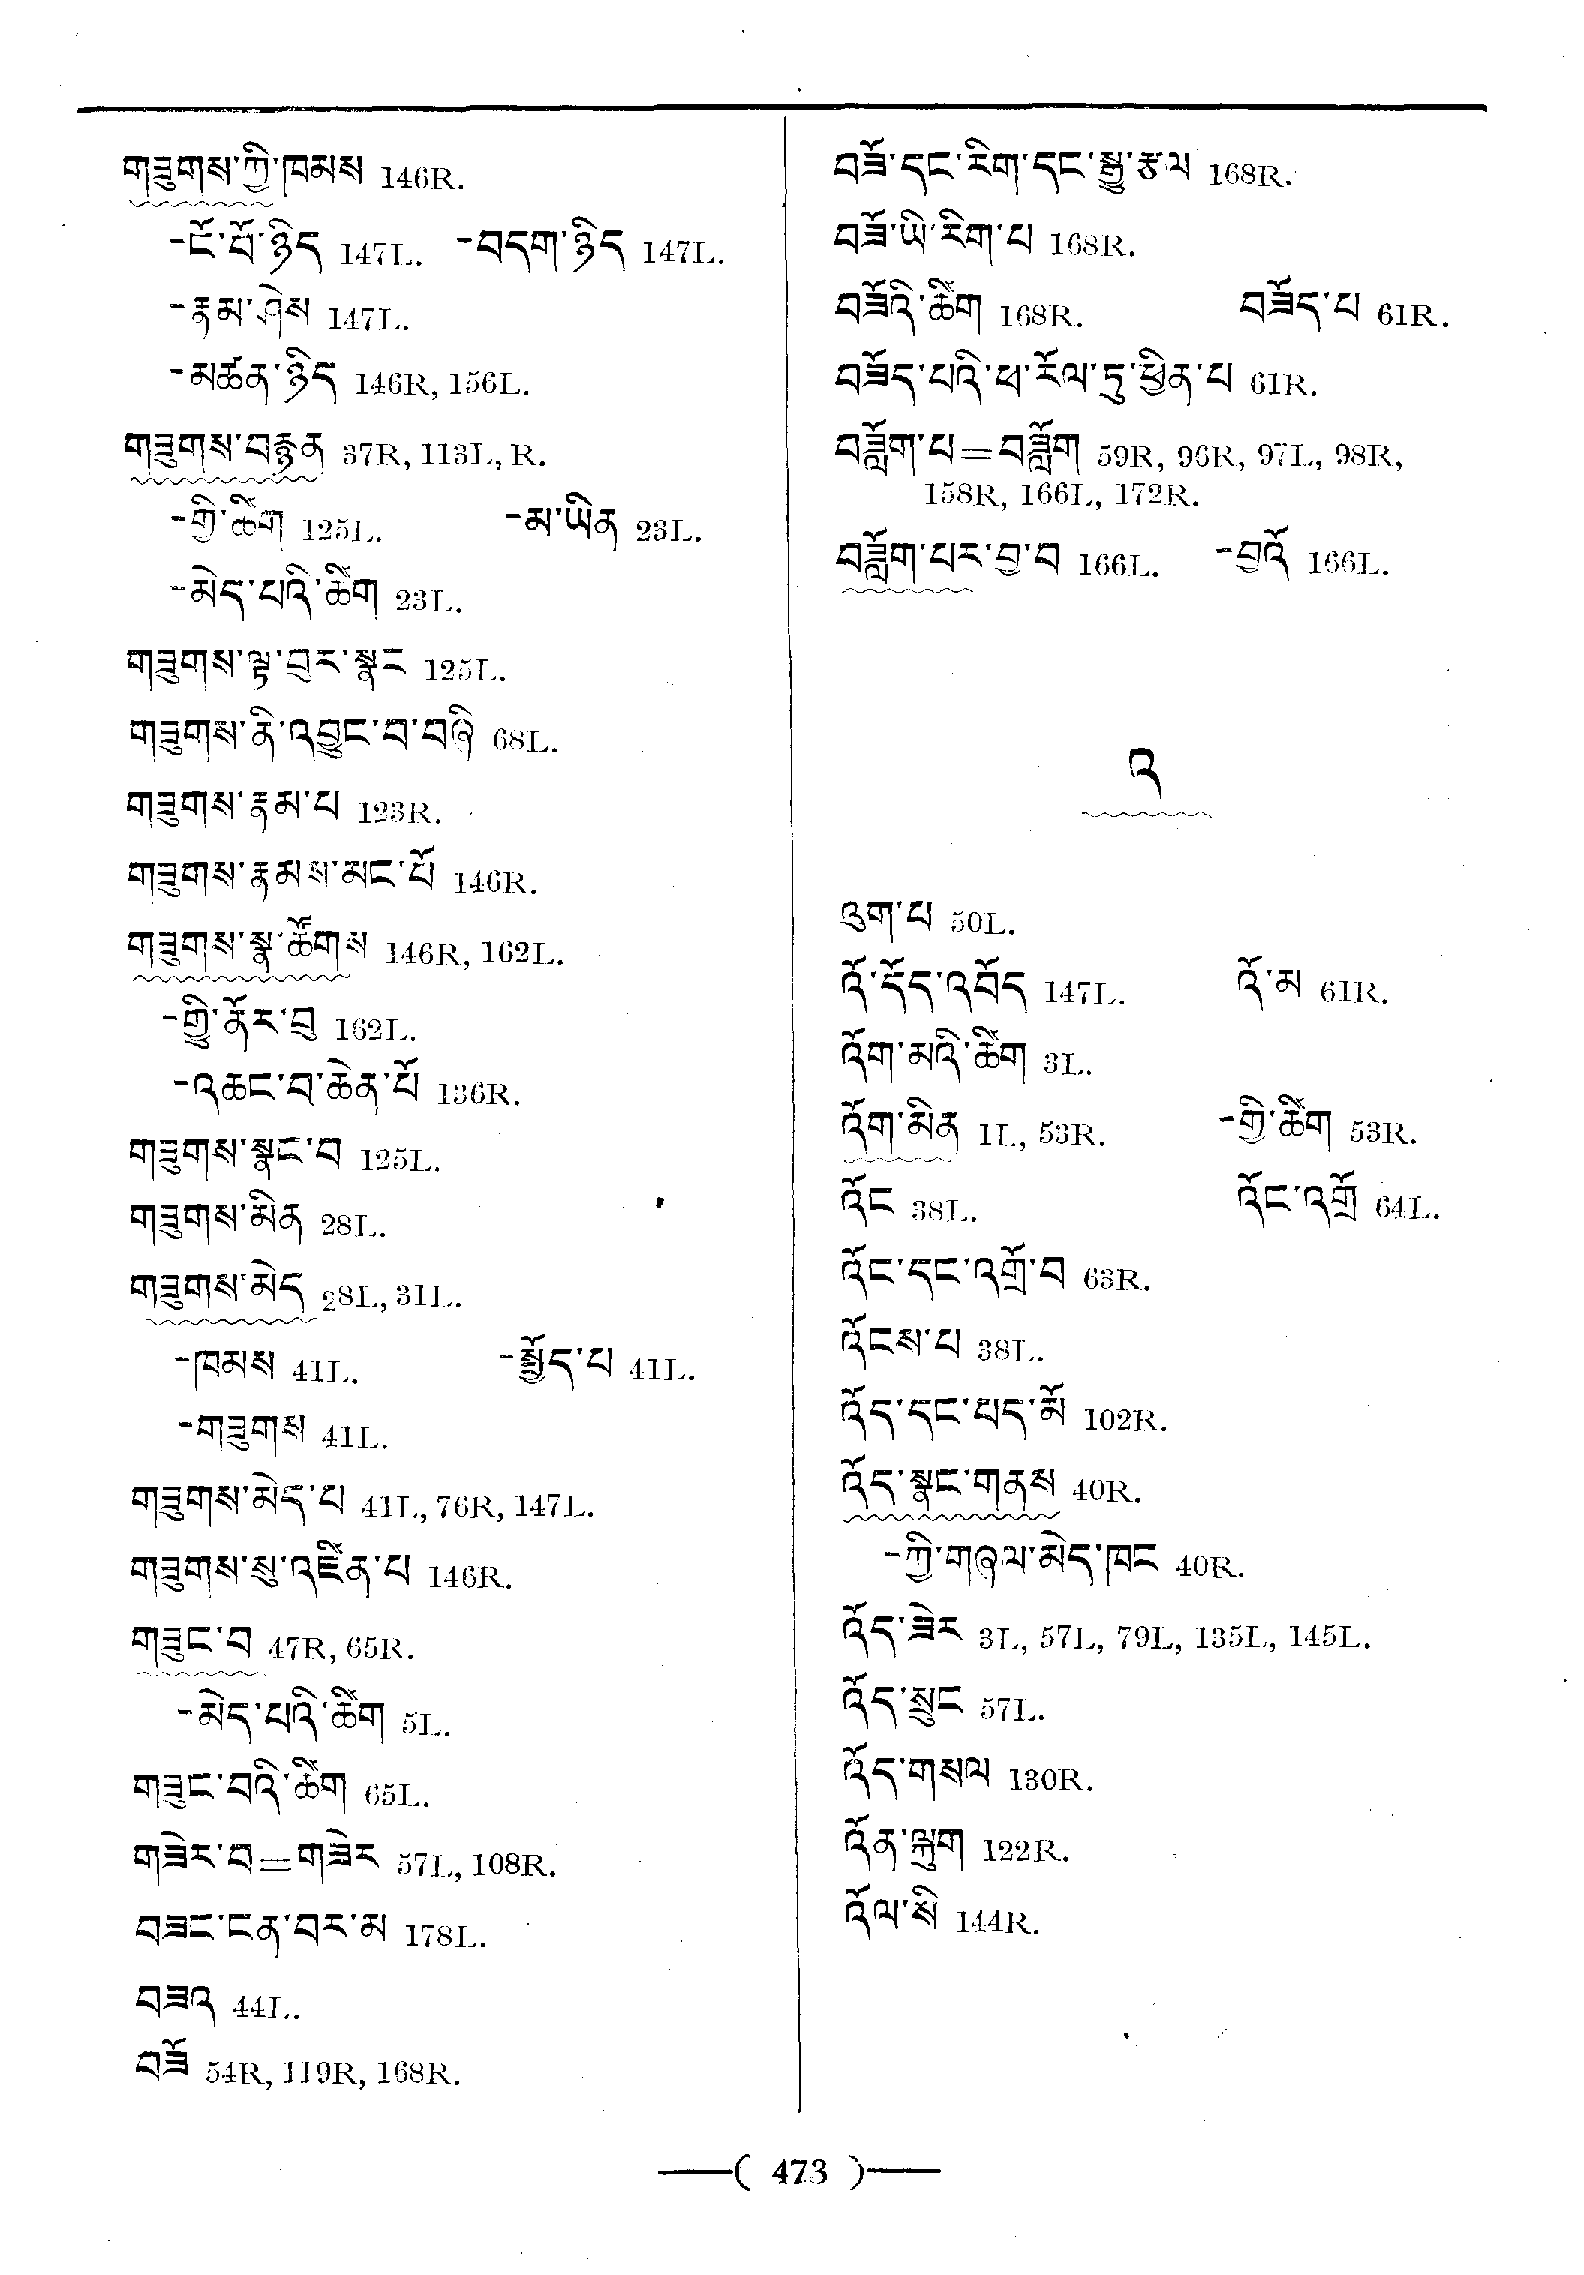 གཟུགས་ཀྱི་ཁམས 146R.
-ངོ་བོ་ཉིད 147L. -བདག་ཉིད 147L.
-རྣམ་ཤེས 147L.
-མཚན་ཉིད 146R, 156L.
གཟུགས་བརྙན 37R, 113L, R.
-གྱི་ཚིག 125L. -མ་ཡིན 23L.
-མེད་པའི་ཚིག 23L.
གཟུགས་ལྟ་བུར་སྣང 125L.
གཟུགས་ནི་འབྱུང་བ་བཞི 68L.
གཟུགས་རྣམ་པ 123R.
གཟུགས་རྣམས་མང་པོ 146R.
གཟུགས་སྣ་ཚོགས 146R, 162L.
-ཀྱི་ནོར་བུ 162L.
-འཆང་བ་ཆེན་པོ 136R.
གཟུགས་སྣང་བ 125L.
གཟུགས་མིན 28L.
གཟུགས་མེད 28L, 31L.
-ཁམས 41L. -སྤྱོད་པ 41L.
-གཟུགས 41L.
གཟུགས་མེད་པ 41L, 76R, 147L.
གཟུགས་སུ་འཛིན་པ 146R.
གཟུང་བ 47R, 65R.
-མེད་པའི་ཚིག 5L.
གཟུང་བའི་ཚིག 65L.
གཟེར་བ=གཟེར 57L, 108R.
བཟང་ངན་བར་མ 178L.
བཟའ 44L.
བཟོ 54R, 119R, 168R.
བཟོ་དང་རིག་དང་སྒྱུ་རྩལ 168R.
བཟོ་ཡི་རིག་པ 168R.
བཟོའི་ཚིག 168R. བཟོད་པ 61R.
བཟོད་པའི་ཕ་རོལ་ཏུ་ཕྱིན་པ 61R.
བཟློག་པ=བཟློག 59R, 96R, 97L, 98R,
158R, 166L, 172R.
བཟློག་པར་བྱ་བ 166L. -བྱའོ 166L.
འ
འུག་པ 50L.
འོ་དོད་འབོད 147L. འོ་མ 61R.
འོག་མའི་ཚིག 3L.
འོག་མིན 1L, 53R. -གྱི་ཚིག 53R.
འོང 38L. འོང་འགྲོ 64L.
འོང་དང་འགྲོ་བ 63R.
འོངས་པ 38L.
འོད་དང་པད་མོ 102R.
འོད་སྣང་གནས 40R.
-ཀྱི་གཞལ་མེད་ཁང 40R.
འོད་ཟེར 3L, 57L, 79L, 135L, 145L.
འོད་སྲུང 57L.
འོད་གསལ 130R.
འོན་ལྐུག 122R.
འོལ་སི 144R.
( 473 )